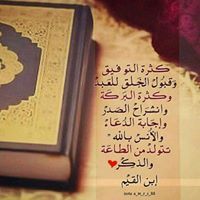 كَثرة التوفيق
وَقبُولُ الخَلقِ لِلعَبدِ
وكَثرة البَركَة
وانشِرَاحُ الصَدرُ
وإجَابة الدُعَاءُ
والأُنسُ بِالله "
تَتولدُ مِن الطَاعَة
والذِكرُ
إبن القَيِّم